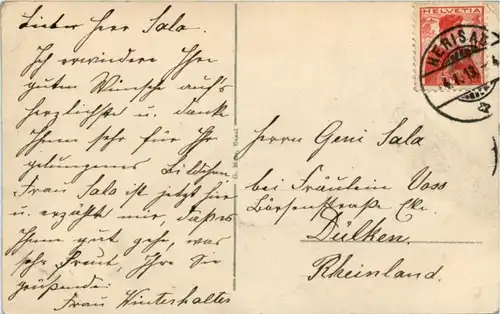 Lieber Herr Sala.
Ich erwiedere Ihre
guten Wünsche auf's
herzlichste u. danke
Ihnen sehr für Ihr
gelungenes Bildchen.
Frau Sala ist jetzt hier
u. erzählt mir, daß es
Ihnen gut gehe, was
sehr freut, Ihre Sie
grüßende
Frau Winterhalter
HELVETIA
HERISAU
Herrn Geni Sala
bei Fräulein Voss
Börsenstraße
Dülken.
Rheinland.